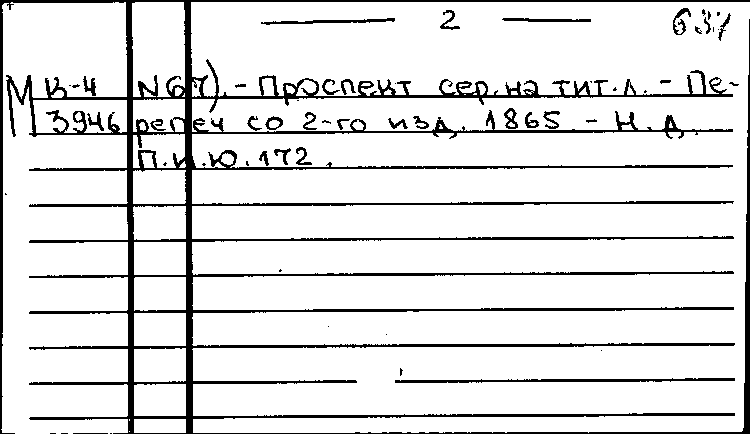 — 2 — 637
М К-4 N67). - Проспект сер. на тит. л. - Пе-
3946 репеч со 2-го изд. 1865 - Н. д.
П. И. Ю. 172.